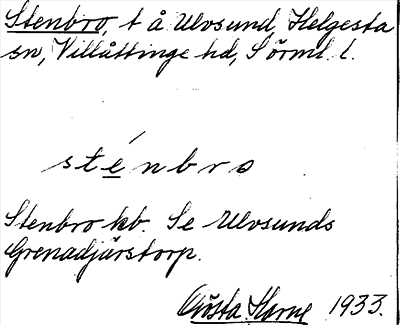 Stenbro, t å Ulvsund, Helgesta
sn, Villåttinge hd, Sörml. l.
sténbro
Stenbro kb. Se Ulvsunds
Grenadjärstorp.
Gösta Horne 1933.